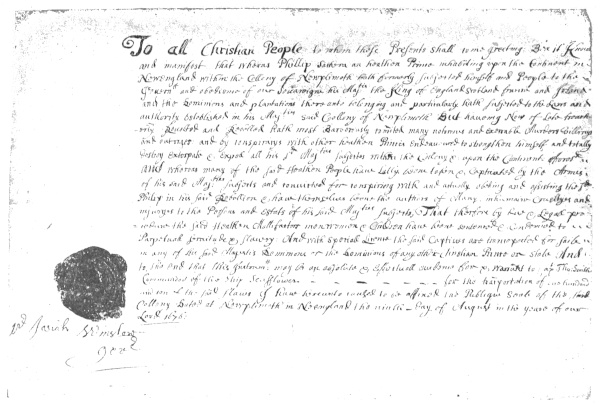 To all Christian People to whom these Presents shall come greeting Bee it Knowne
and manifest that wheras Phillip Sachem an heathen Prince inhabiting upon the Continent in
Newengland within the Collony of Newplimoth hath formerly subjected himself and People to the
and obedience of our Soveraigne his Majtie the King of England Scotland france and Ireland
and the Dominions and plantations there unto belonging and particularly hath subjected to the Laws and
authority established in his Majties said Collony of Newplimoth But haveing Now of late
Revolted and Rebelled hath most Barbarously many notorious and execrable Murders
and outrages and by conspiracy with other heathen Princes Endeavoured to strengthen himself and totally
destroy Extirpate & Expell all his sd Majties subjects within the Colony & upon the Continent
And wheras many of the said Heathen People have Lately beene taken & Captivated by the Armies
of his said Majties subjects and convicted for conspiring with and actually aideing and assisting the sd
Philip in his said Rebellion & have themselves beene the authors of Many inhumane Crueltyes and
injuryes to the Persons and Estats of his said Majties subjects That therfore by due & Legal
the said Heathen Mallefactors men women & Children have beene sentenced & condemned to
Perpetuall servitude & slavery And with speciall the said Captives are transported for saile
in any of his said Majesties Dominions or the Dominions of any other Christian Prince or State And
to the end that this may be an absolute & effectuall & warrant to
Commander of the Ship Seaflower for the transportation of
of the said slaves I have heerunto caused to be affixed the Publique Seale of the said
Collony Dated at Newplimoth in Newengland the ninth Day of August in the yeare of our
Lord 1676
Josiah Winslow